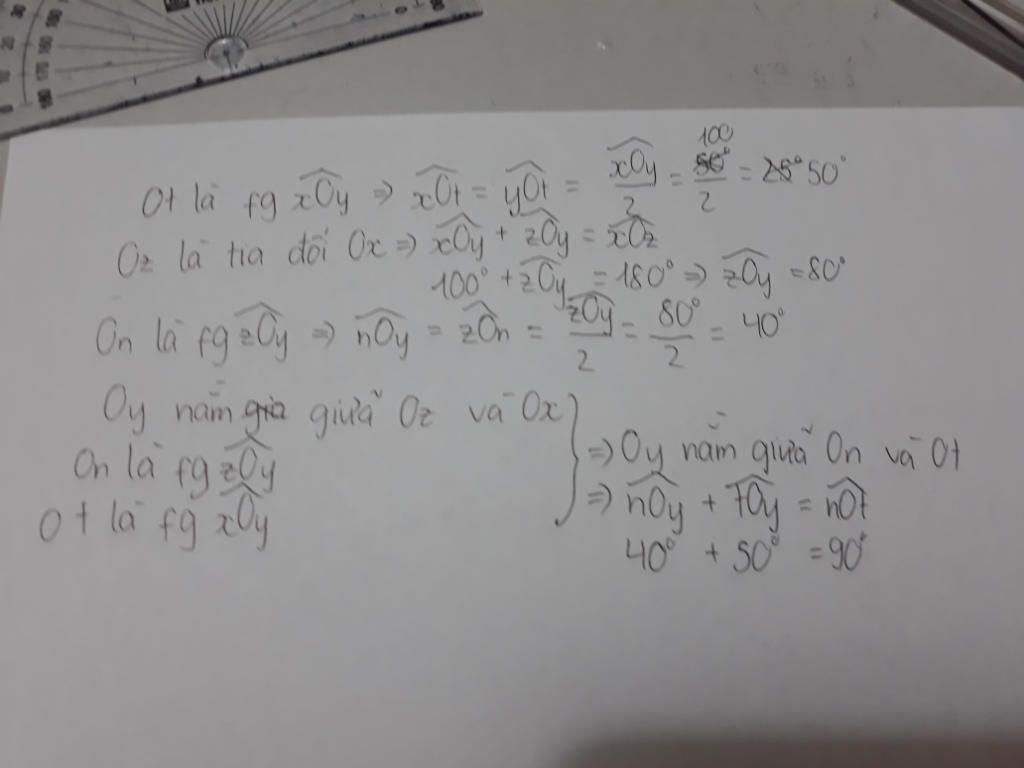 Ot là fg xOy ⇒ xOt = yOt = xOy/2 = 100°/2 = 50°
Oz là tia đối Ox ⇒ xOy + zOy = xOz
100° + zOy = 180° ⇒ zOy = 80°
On là fg zOy ⇒ nOy = zOn = zOy/2 = 80°/2 = 40°
Oy nằm giữa Oz và Ox
On là fg zOy
Ot là fg xOy
⇒ Oy nằm giữa On và Ot
⇒ nOy + tOy = nOt
40° + 50° = 90°